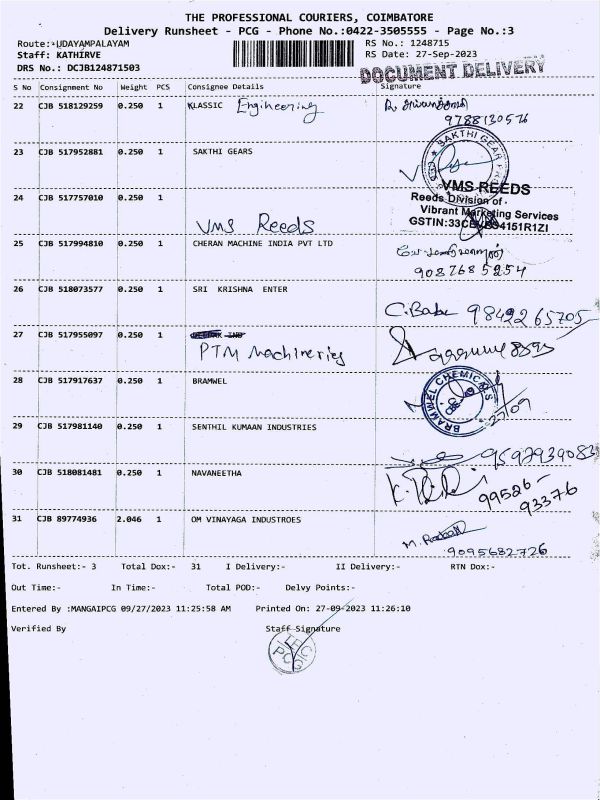 THE PROFESSIONAL COURIERS, COIMBATORE
Delivery Runsheet - PCG - Phone No.:0422-3505555 - Page No.:3
Route:-UDAYAMPALAYAM RS No.: 1248715
Staff: KATHIRVE RS Date: 27-Sep-2023
DRS No.: DCJB124871503 DOCUMENT DELIVERY
S No Consignment No Weight PCS Consignee Details Signature
22 CJB 518129259 0.250 1 KLASSIC Engineering
9788130576
23 CJB 517952881 0.250 1 SAKTHI GEARS
SAKTHI GEAR
24 CJB 517757010 0.250 1 VMS REEDS
Reeds Division of
Vibrant Marketing Services
VMS Reeds
25 CJB 517994810 0.250 1 CHERAN MACHINE INDIA PVT LTD
9087685254
26 CJB 518073577 0.250 1 SRI KRISHNA ENTER
C. Babu 9842265705
27 CJB 517955097 0.250 1
PTM Machineries
28 CJB 517917637 0.250 1 BRAMWEL
BRAMWEL CHEMICALS
27/09
29 CJB 517981140 0.250 1 SENTHIL KUMAAN INDUSTRIES
9597939083
30 CJB 518081481 0.250 1 NAVANEETHA
99526-
93376
31 CJB 89774936 2.046 1 OM VINAYAGA INDUSTROES
9095682726
Tot. Runsheet:- 3 Total Dox:- 31 I Delivery:- II Delivery:- RTN Dox:-
Out Time:- In Time:- Total POD:- Delvy Points:-
Entered By :MANGAIPCG 09/27/2023 11:25:58 AM Printed On: 27-09-2023 11:26:10
Verified By Staff Signature